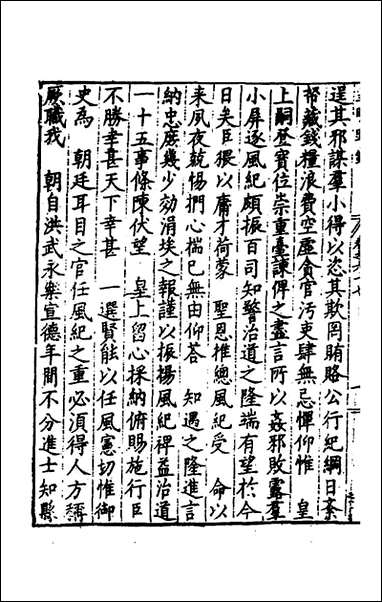 逞其邪謀羣小得以恣其欺罔賄賂公行紀綱日紊
帑藏錢糧浪費空虛貪官汚吏肆無忌憚仰惟　皇
上嗣登寳位崇重臺諫俾之盡言所以姦邪敗露羣
小屏逐風紀頗振百司知警治道之隆端有望於今
日矣臣猥以庸才荷蒙　聖恩推總風紀受　命以
来夙夜兢惕捫心惴已無由仰荅　知遇之隆進言
納忠庶幾少効涓埃之報謹以振揚風紀禆益治道
一十五事條陳伏望　皇上留心採納俯賜施行臣
不勝幸甚天下幸甚　一選賢能以任風憲切惟御
史為　朝廷耳目之官任風紀之重必湏得人方稱
厥職我　朝自洪武永樂宣德年間不分進士知縣